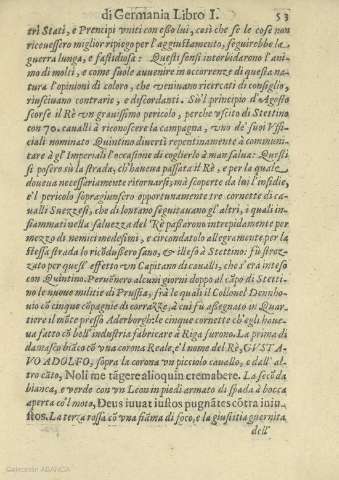 di Germania Libro I. 53
tri Stati, e Prencipi vniti con esso lui, così che se le cose non
riceuessero miglior ripiego per l'aggiustamento, seguirebbe la
guerra lunga, e fastidiosa: Questi sensi intorbidarono l'ani-
mo di molti, e come suole auuenire in occorrenze di questa na-
tura l'opinioni di coloro, che veniuano ricercati di consiglio,
riusciuano contrarie, e discordanti. Sù'l principio d'Agosto
scorse il Rè vn grauissimo pericolo, perche vscito di Stettino
con 70. caualli à riconoscere la campagna, vno de' suoi Vffi-
ciali nominato Quintino diuertì repentinamente à communi-
care à gl'Imperiali l'occasione di coglierlo à man salua: Questi
si posero sù la strada, ch'haueua passata il Rè, e per la quale
doueua necessariamente ritornarsi, mà scoperte da lui l'insidie,
e'l pericolo sopragiunsero opportunamente tre cornette di ca-
ualli Suezzesi, che di lontano seguitauano gl'altri, i quali in-
fiammati nella saluezza del Rè passarono intrepidamente per
mezzo di nemici medesimi, e circondatolo allegramente per la
stessa strada lo ricõdussero sano, & illeso à Stettino. fù stroz-
zato per quest' effetto vn Capitano di caualli, che s'era inteso
con Quintino. Peruẽnero alcuni giorni doppo al cãpo di Stetti-
no le nuoue militie di Prussia, frà le quali il Collonel Dennho-
uio cõ cinque cõpagnie di corrazze, à cui fù assegnato in Quar-
tiere il mõte presso Aderborgh: le cinque cornette ch'egli haue-
ua fatto cõ bell' industria fabricare à Riga furono. La prima di
damasco biãco cõ vna corona Reale, è'l nome del Rè, GVSTA-
VO ADOLFO, sopra la corona vn picciolo cauallo, e dall' al-
tro cãto, Noli me tãgere alioquin cremabere. La secõda
bianca, e verde con vn Leon in piedi armato di spada à bocca
aperta cõ'l moto, Deus iuuat iustos pugnãtes cõtra iniu-
stos. La terza rossa cõ vna fiãma di foco, e la giustitia guernita
dell'
Colección ABANCA